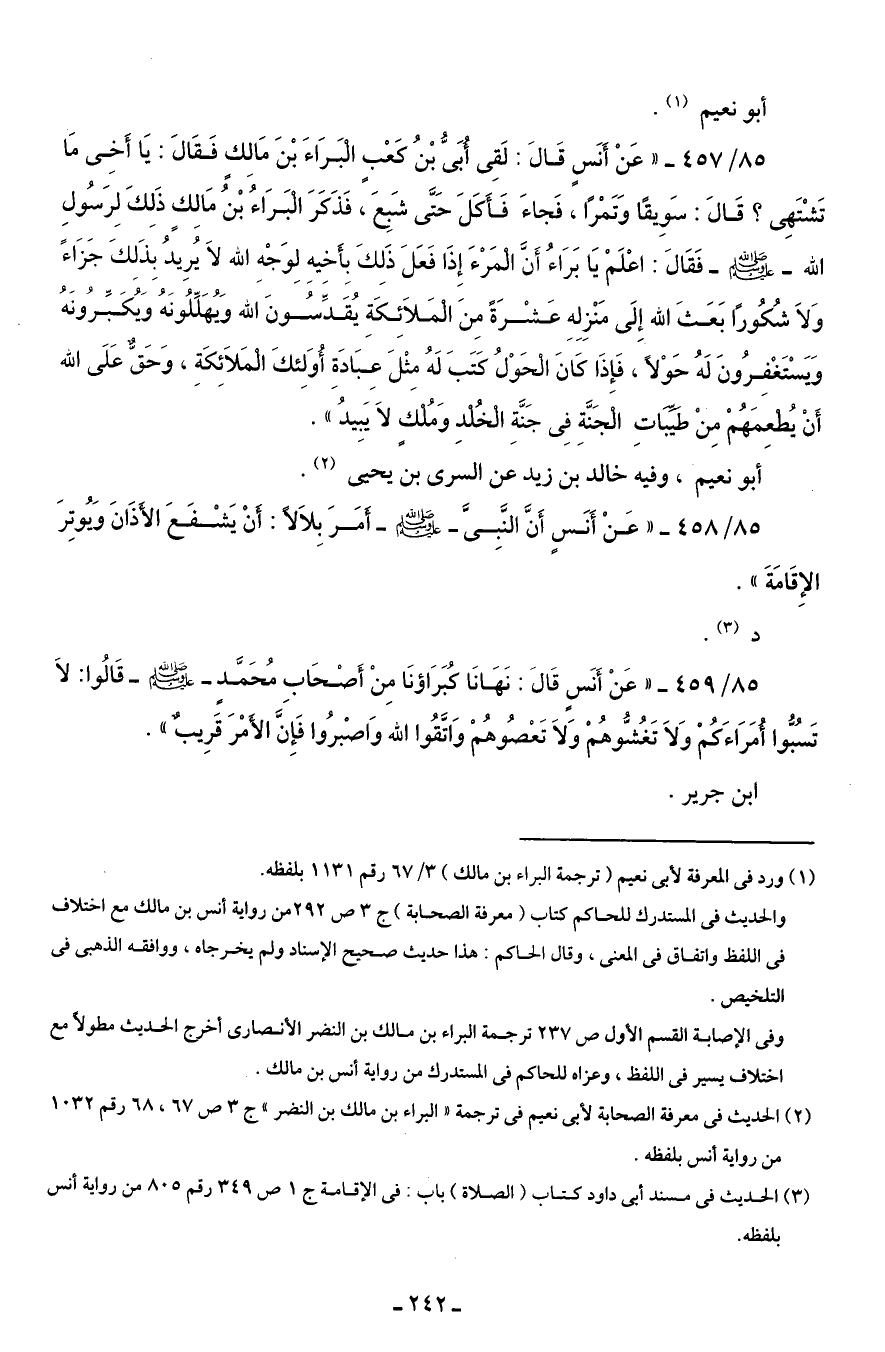 أبو نعيم (١) .
٤٥٧/٨٥ ـ « عَنْ أَنَسٍ قَالَ : لَقِى أُبَىُّ بْنُ كَعْبٍ الْبَرَاءَ بْنَ مَالِكٍ فَقَالَ : يَا أَخِى مَا
تَشْتَهِى ؟ قَالَ : سَوِيقًا وَتَمْرًا ، فَجاءَ فَأَكَلَ حَتَّى شَبِعَ ، فَذَكَرَ الْبَرَاءُ بْنُ مَالِكٍ ذَلِكَ لِرَسُولِ
الله ـ ﷺ ـ فَقَالَ : اعْلَمْ يَا بَرَاءُ أَنَّ الْمَرْءَ إِذَا فَعَلَ ذَلِكَ بِأَخِيهِ لِوَجْهِ الله لاَ يُرِيدُ بِذَلِكَ جَزَاءً
وَلاَ شُكُورًا بَعَثَ الله إِلَى مَنْزِلِهِ عَشْرَةً مِنَ الْمَلاَئِكَةِ يُقَدِّسُونَ الله وَيُهَلِّلُونَهُ وَيُكَبِّرُونَهُ
وَيَسْتَغْفِرُونَ لَهُ حَوْلاً ، فَإِذَا كَانَ الْحَوْلُ كَتَبَ لَهُ مِثْلَ عِبَادَةِ أُولَئِكَ الْمَلاَئِكَةِ ، وَحَقٌّ عَلَى الله
أَنْ يُطْعِمَهُمْ مِنْ طَيِّبَاتِ الْجَنَّةِ فِى جَنَّةِ الْخُلْدِ وَمُلْكٍ لاَ يَبِيدُ » .
أبو نعيم ، وفيه خالد بن زيد عن السرى بن يحيى (٢) .
٤٥٨/٨٥ ـ « عَنْ أَنَسٍ أَنَّ النَّبِىَّ ـ ﷺ ـ أَمَرَ بِلاَلاً : أَنْ يَشْفَعَ الأَذَانَ وَيُوتِرَ
الإِقَامَةَ » .
د (٣) .
٤٥٩/٨٥ ـ « عَنْ أَنَسٍ قَالَ : نَهَانَا كُبَرَاؤُنَا مِنْ أَصْحَابِ مُحَمَّدٍ ـ ﷺ ـ قَالُوا: لاَ
تَسُبُّوا أُمَرَاءَكُمْ وَلاَ تَغُشُّوهُمْ وَلاَ تَعْصُوهُمْ وَاتَّقُوا الله وَاصْبِرُوا فَإِنَّ الأَمْرَ قَرِيبٌ» .
ابن جرير .
(١) ورد فى المعرفة لأبى نعيم ( ترجمة البراء بن مالك ) ٦٧/٣ رقم ١١٣١ بلفظه.
والحديث فى المستدرك للحاكم كتاب ( معرفة الصحابة ) ج ٣ ص ٢٩٢من رواية أنس بن مالك مع اختلاف
فى اللفظ واتفاق فى المعنى ، وقال الحاكم : هذا حديث صحيح الإسناد ولم يخرجاه ، ووافقه الذهبى فى
التلخيص .
وفى الإصابة القسم الأول ص ٢٣٧ ترجمة البراء بن مالك بن النضر الأنصارى أخرج الحديث مطولاً مع
اختلاف يسير فى اللفظ ، وعزاه للحاكم فى المستدرك من رواية أنس بن مالك .
(٢) الحديث فى معرفة الصحابة لأبى نعيم فى ترجمة « البراء بن مالك بن النضر » ج ٣ ص ٦٧ ، ٦٨ رقم ١٠٣٢
من رواية أنس بلفظه .
(٣) الحديث فى مسند أبى داود كتاب ( الصلاة ) باب : فى الإقامة ج ١ ص ٣٤٩ رقم ٨٠٥ من رواية أنس
بلفظه.
ـ ٢٤٢ ـ